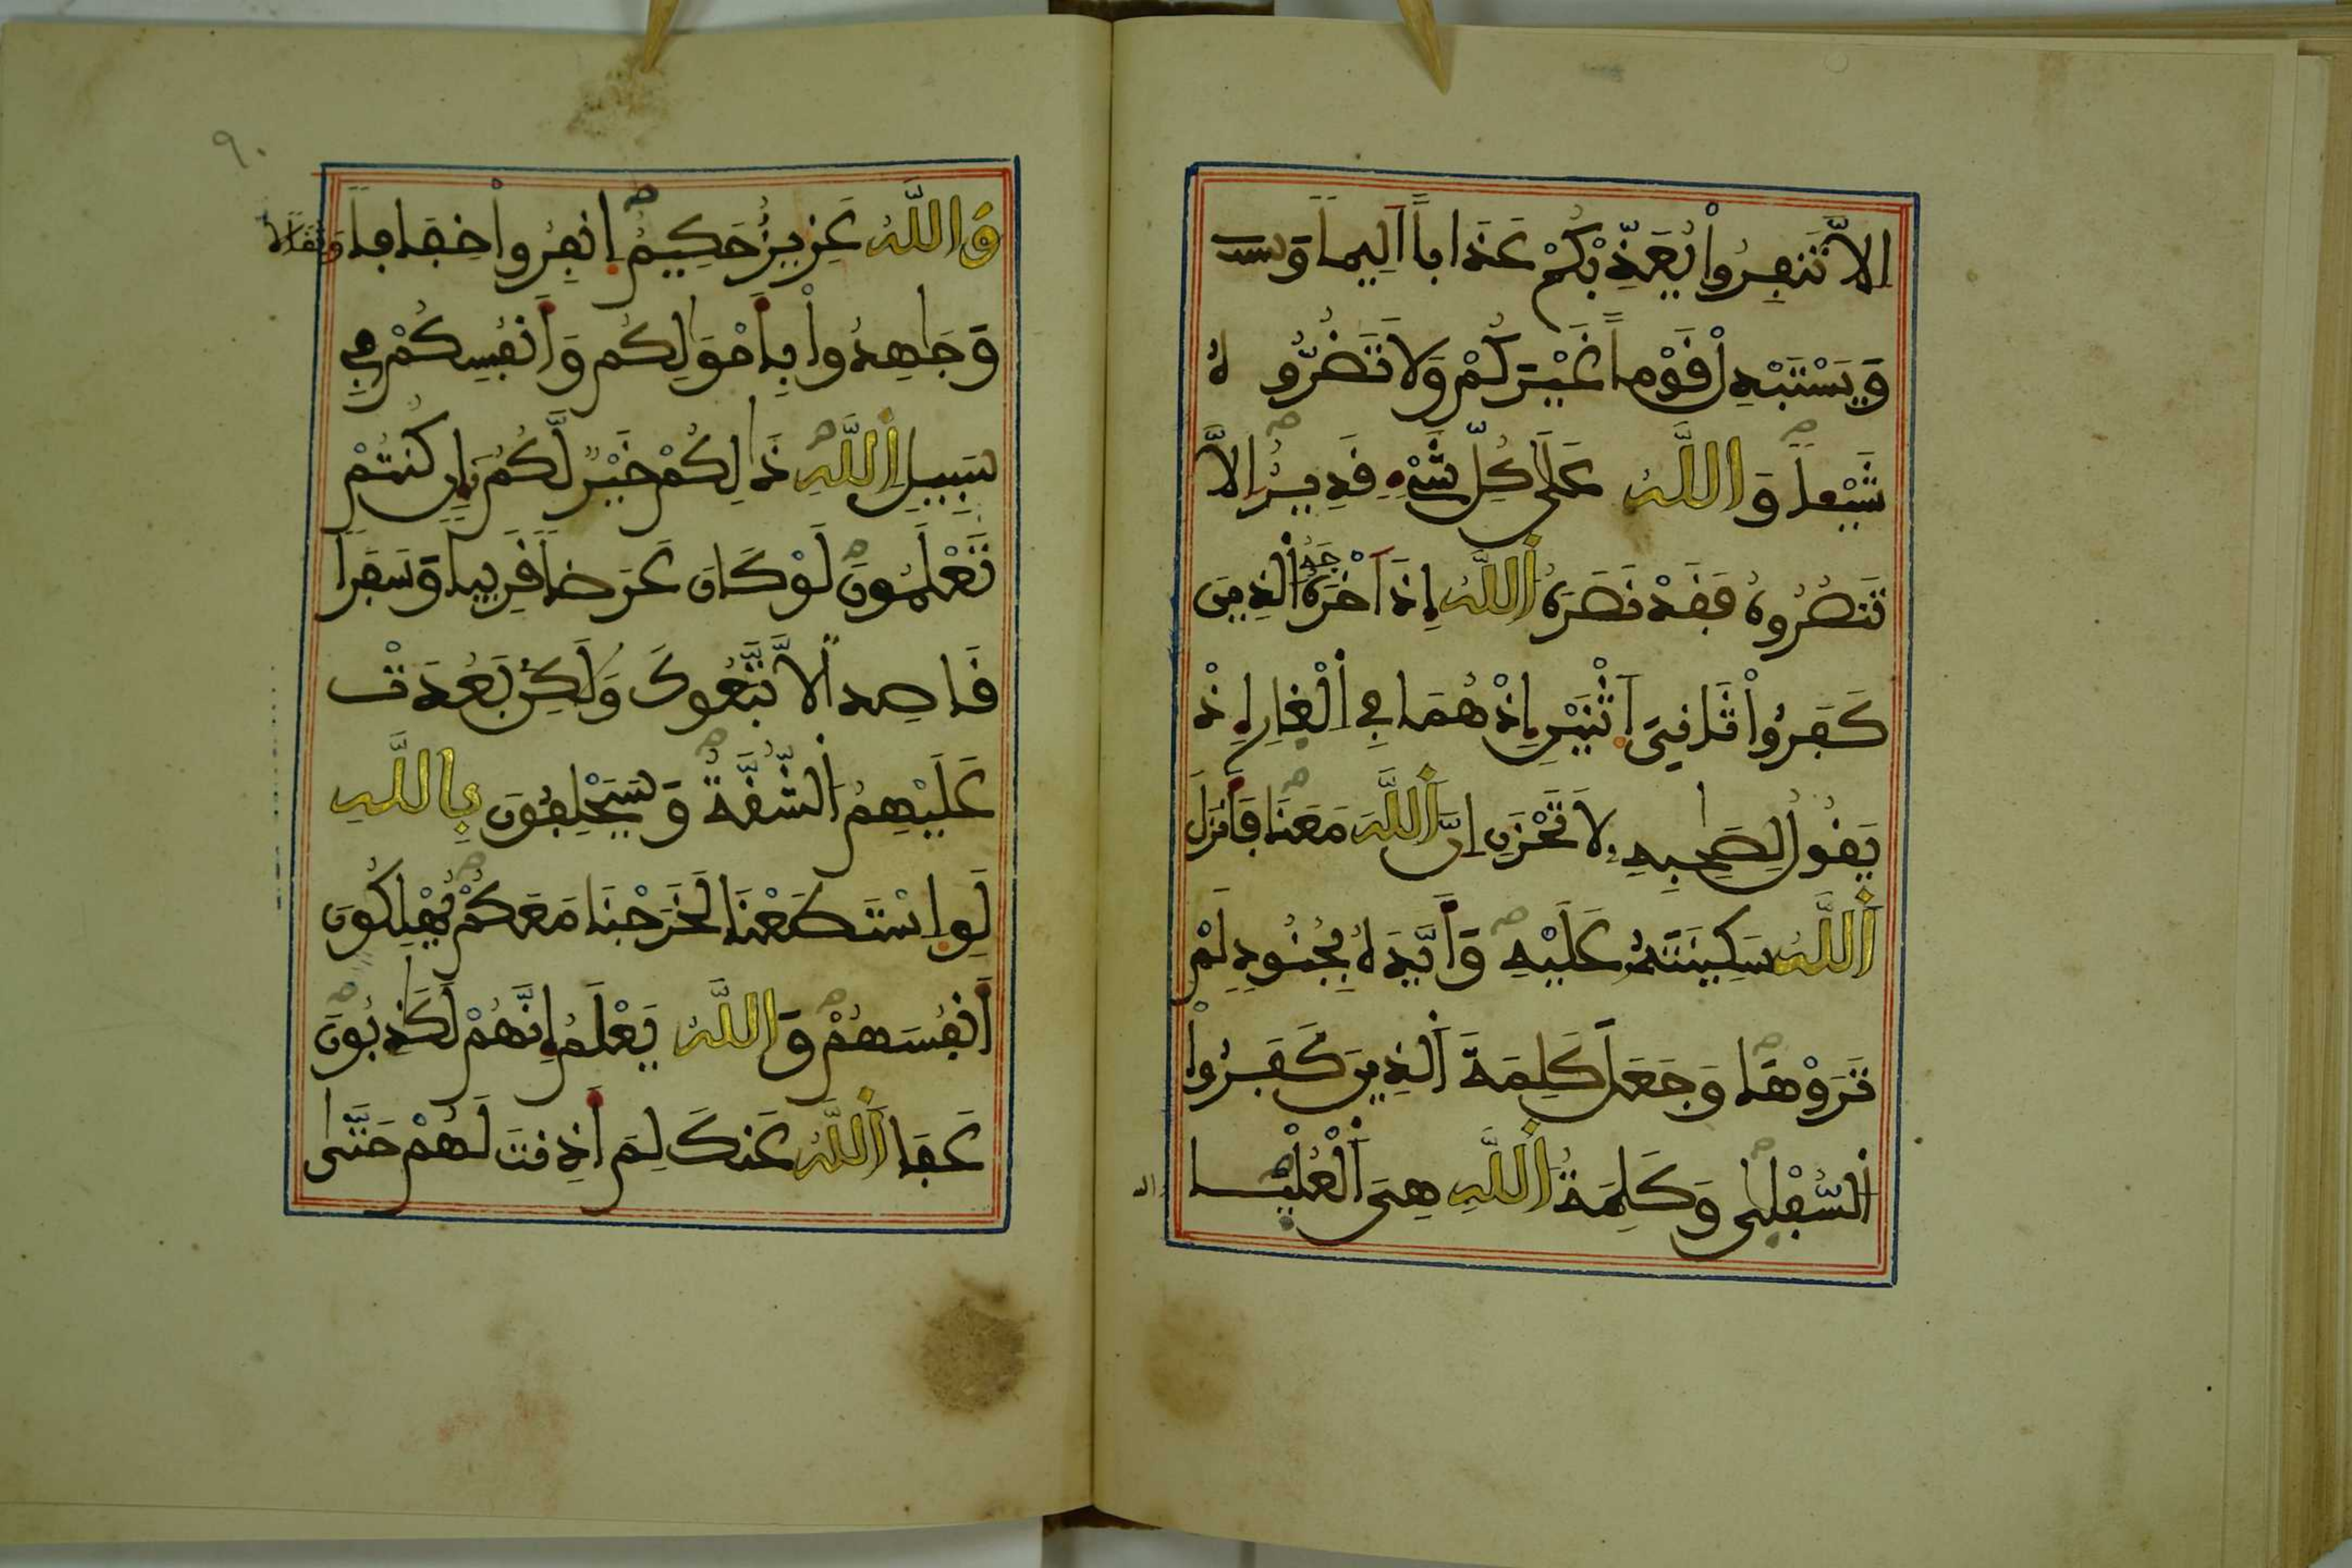 اِلاَّ تَنفِرُواْ يُعَذِّبْكُمْ عَذَاباً اَلِيماً وَيسـ
وَيَسْتَبْدِلْ قَوْماً غَيْرَكُمْ وَلاَ تَضُرُّوهُ
شَيْـٔاً وَاللَّهُ عَلَىٰ كُلِّ شَيْءٍ قَدِيرٌ اِلاَّ
تَنصُرُوهُ فَقَدْ نَصَرَهُ اُللَّهُ إِذَ اَخْرَجَهُ اُلذِينَ
كَفَرُواْ ثَانِيَ اَثْنَيْنِ إِذْ هُمَا فِي اِلْغارِ إِذْ
يَقُولُ لِصَٰحِبِهِ لاَ تَحْزَنِ اِنَّ اَللَّهَ مَعَنَا فَأَنزَلَ
اَللَّهُ سَكِينَتَهُ عَلَيْهِ وَأَيَّدَهُ بِجُنُودٍ لَمْ
تَرَوْهَا وَجَعَلَ كَلِمَةَ اَلذِينَ كَفَرُواْ
اُلسُّفْلَىٰ وَكَلِمَةُ اُللَّهِ هِيَ اَلْعُلْيَـــا
والله
٩٠
وَاللَّهُ عَزِيزٌ حَكِيمٌ اِنفِرُواْ خِفَافاً وَثِقَالاً
وَجَٰهِدُواْ بِأَمْوَٰلِكُمْ وَأَنفُسِكُمْ فِي
سَبِيلِ اِللَّهِ ذَٰلِكُمْ خَيْرٌ لَّكُمُ إِن كُنتُمْ
تَعْلَمُونَ لَوْ كَانَ عَرَضاً قَرِيباً وَسَفَراً
قَاصِداً لاَّتَّبَعُوكَ وَلَٰكِنۢ بَعُدَتْ
عَلَيْهِمُ اُلشُّقَّةُ وَسَيَحْلِفُونَ بِاللَّهِ
لَوِ اِسْتَطَعْنَا لَخَرَجْنَا مَعَكُمْ يُهْلِكُونَ
أَنفُسَهُمْ وَاللَّهُ يَعْلَمُ إِنَّهُمْ لَكَٰذِبُونَ
عَفَا اَللَّهُ عَنكَ لِمَ أَذِنتَ لَهُمْ حَتَّىٰ